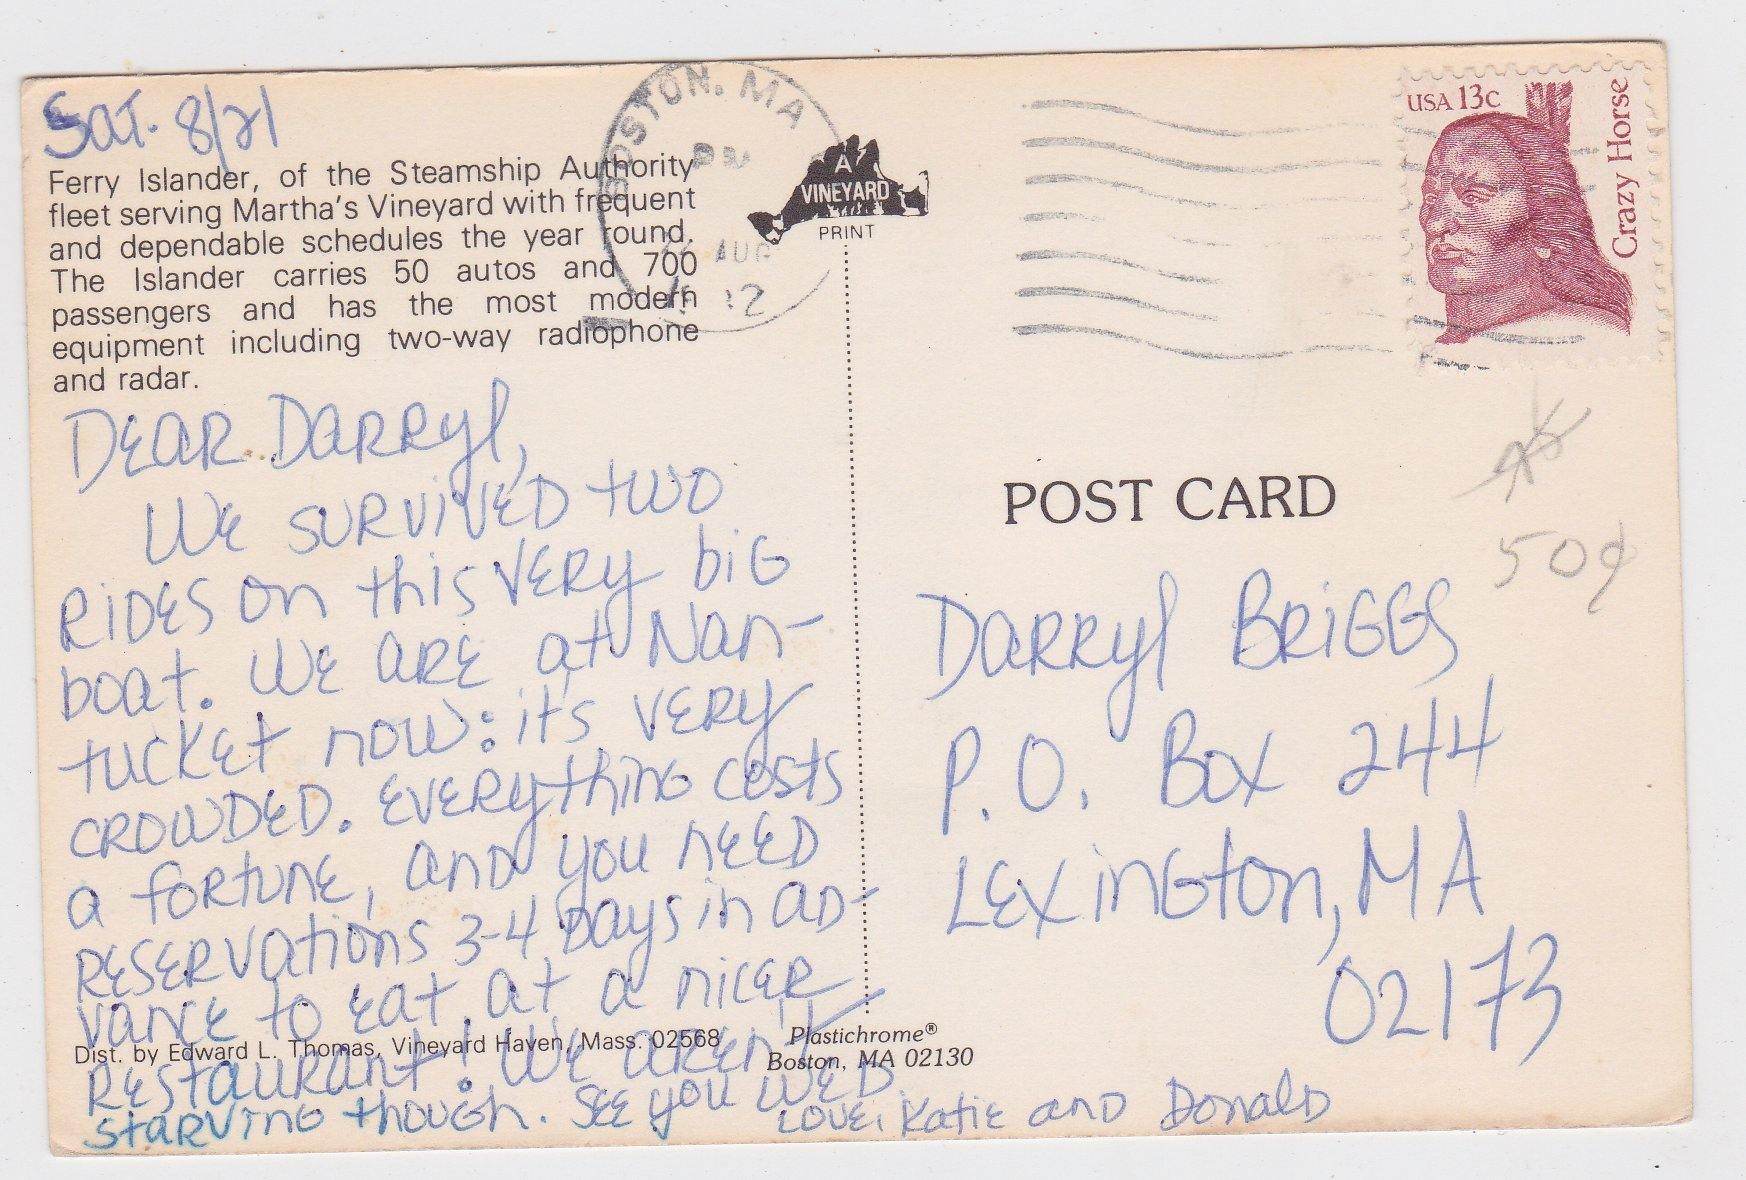 Sat. 8/21
Ferry Islander, of the Steamship Authority
fleet serving Martha's Vineyard with frequent
and dependable schedules the year round.
The Islander carries 50 autos and 700
passengers and has the most modern
equipment including two-way radiophone
and radar.
BOSTON, MA
PM
AUG
A
VINEYARD
PRINT
USA 13c
Crazy Horse
DEAR DARRyl,
WE SURViVED two
RiDES on this VERy biG
boat. WE ARE at Nan-
tuckEt now: it's VERy
CROWDED. EVERythinG costs
a foRtunE, anD you nEED
RESERVations 3-4 Days in aD-
vancE to Eat at a nicER
REstauRant! WE aREn't
staRVinG though. SEE you WED
LovE, KatiE anD DonalD
Dist. by Edward L. Thomas, Vineyard Haven, Mass. 02568
Plastichrome®
Boston, MA 02130
POST CARD
50¢
DaRRyl BRiGGS
P.O. Box 244
LExinGton, MA
02173